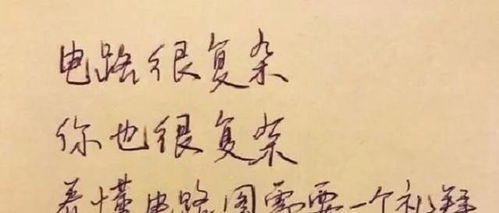 电路很复杂
你也很复杂
看懂电路图需要一个礼拜